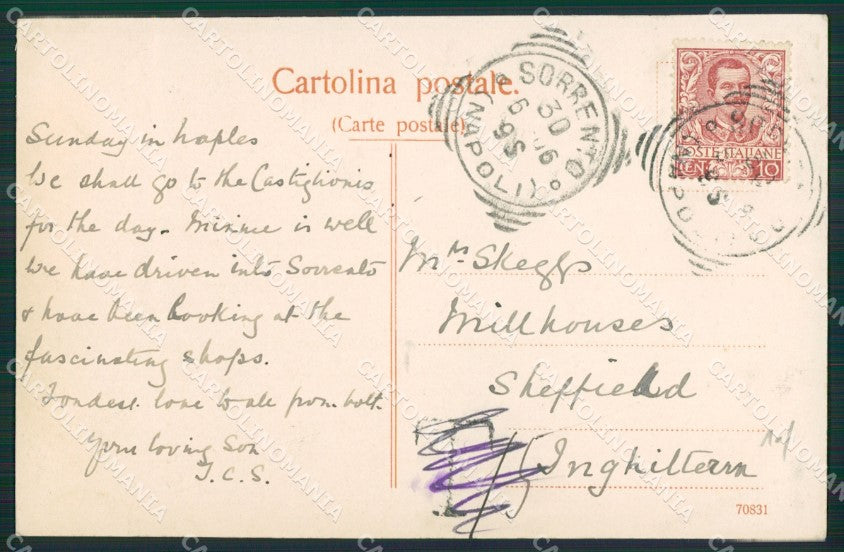 Cartolina postale.
(Carte postale)
SORRENTO
(NAPOLI)
30
6 06
9S
POSTE ITALIANE
CEN. 10
Sunday in Naples
We shall go to the Castiglionis
for the day. Minnie is well
We have driven into Sorrento
& have been looking at the
fascinating shops.
Fondest love to all from both.
Your loving Son
J.C.S.
Mrs Skeggs
Millhouses
Sheffield
Inghilterra
70831
CARTOLINOMANIA